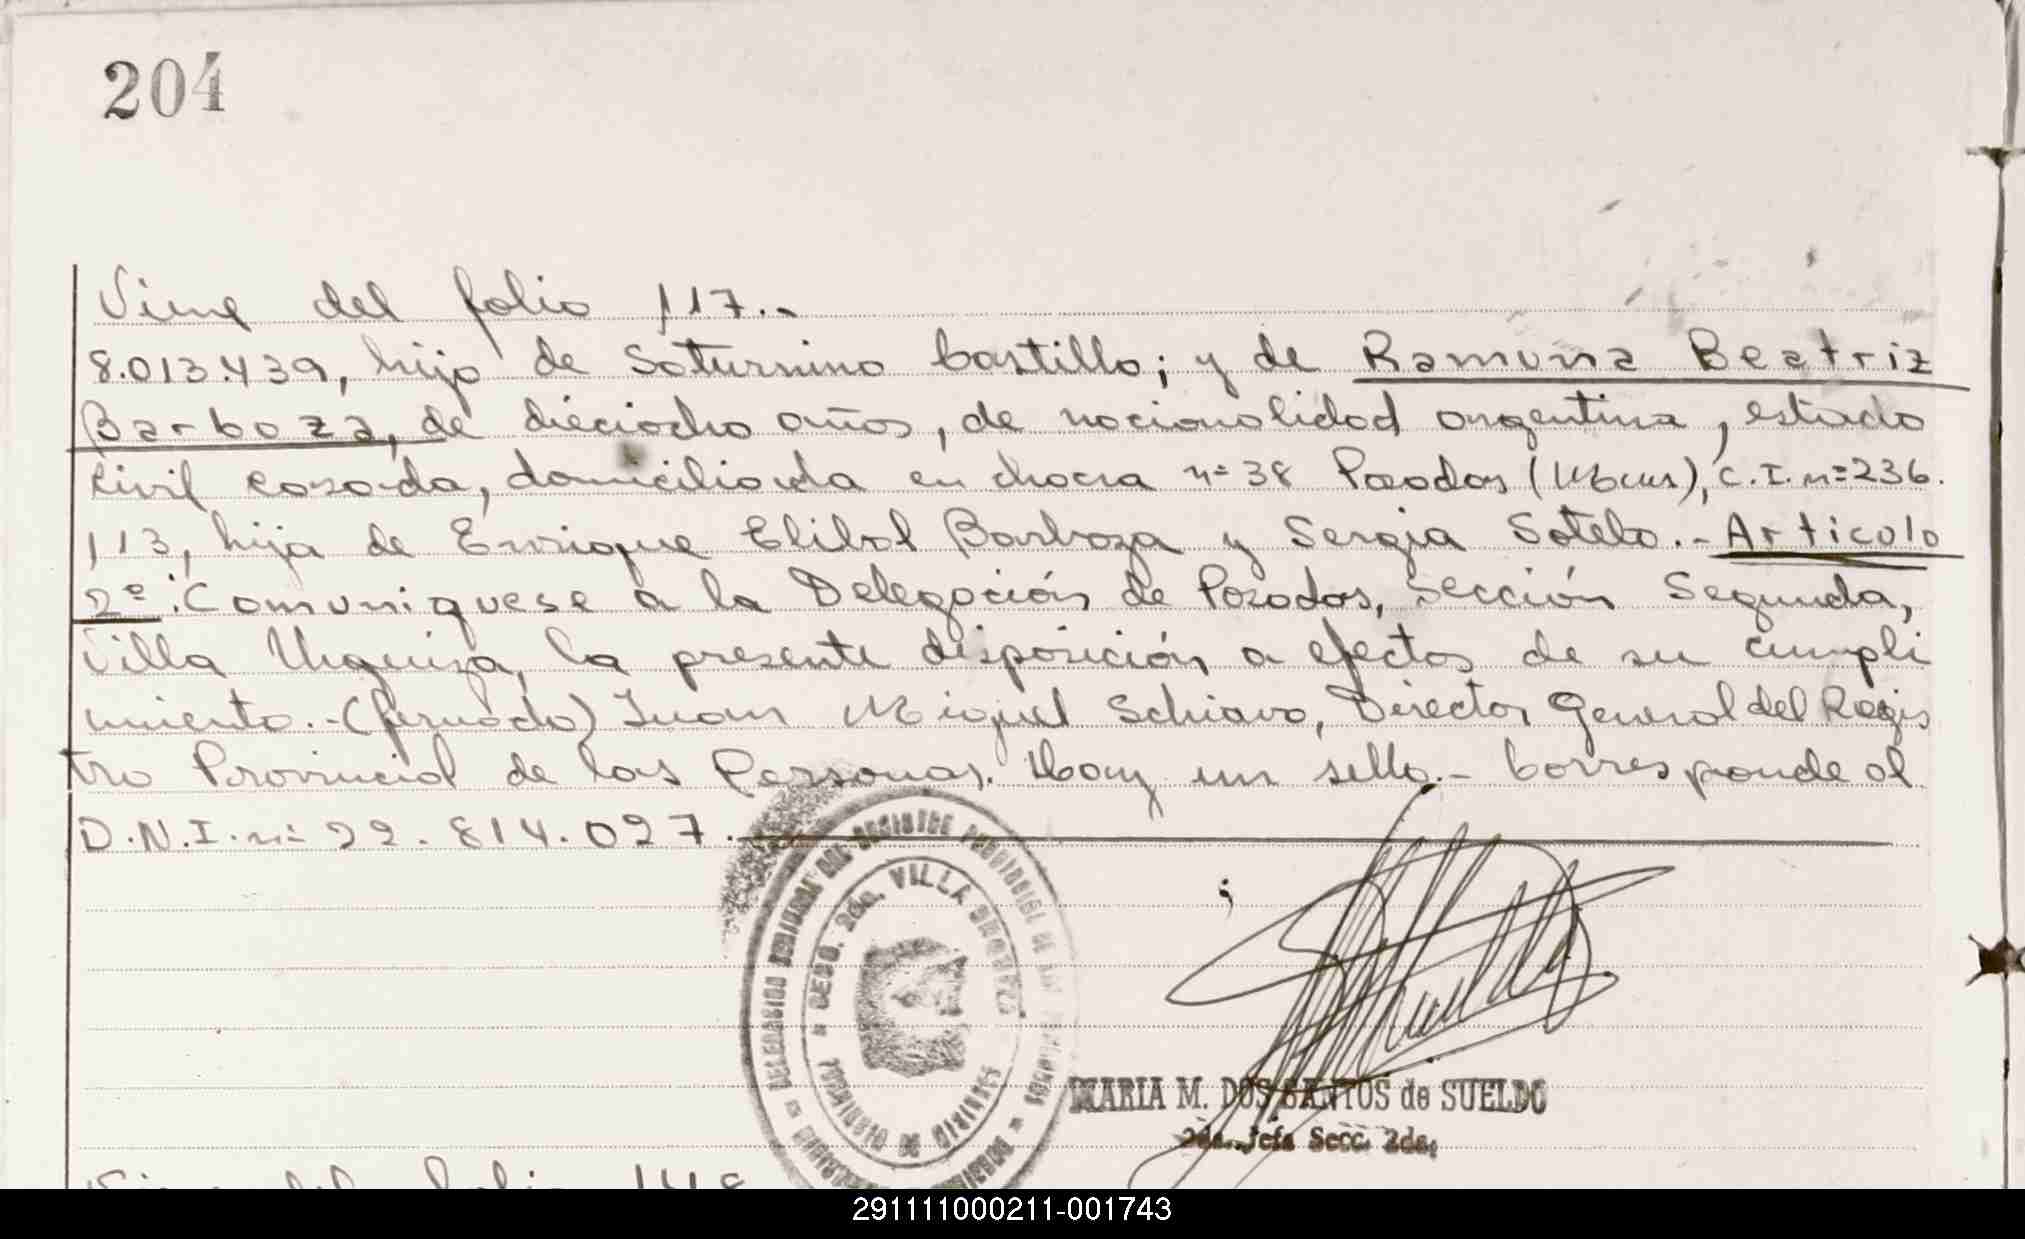 204
Viene del folio 117.-
8.013.439, hijo de Saturnino Castillo; y de Ramona Beatriz
Barboza, de dieciocho años, de nacionalidad argentina, estado
civil casada, domiciliada en chacra nº 38 Posadas (Mnes), C.I. nº 236.
113, hija de Enrique Elibal Barboza y Sergia Sotelo.- Articulo
2º: Comuniquese a la Delegación de Posadas, Sección Segunda,
Villa Urquiza, la presente disposición a efectos de su cumpli
miento.- (firmado) Juan Miguel Schiavo, Director General del Regis
tro Provincial de las Personas. Hay un sello.- Corresponde al
D.N.I. nº 22.814.027.
VILLA URQUIZA
MARIA M. DOS SANTOS de SUELDO
2da. Jefa Secc. 2da.
Viene del folio
291111000211-001743